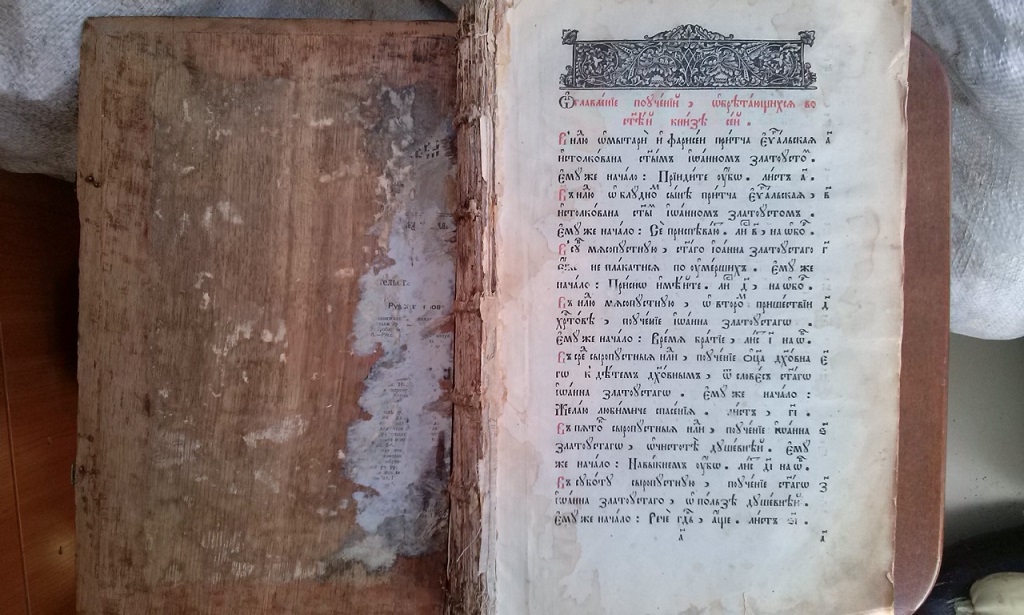 Ѡ҆главле́нїе поꙋче́нїй , ѡ҆брѣта́ющихсѧ во
ст҃ѣ́й кни́зѣ се́й .
В̾ нлю ѡ҆ мытарѝ и҆ фарисе́и при́тча є҆ѵⷢ҇альскаѧ а҃
и҆столкована ст҃ы́мъ і҆ѡа́нномъ златоꙋсто́ⷨ .
є҆мꙋ́же нача́ло : Прїиди́те ᲂу҆́бѡ . ли́стъ а҃ .
Въ нлю ѡ҆ блꙋ́дноⷨ сы́нѣ при́тча є҆ѵⷢ҇альскаѧ , в҃
и҆столкована ст҃ы́ⷨ і҆ѡа́нномъ златоꙋ́стомъ .
є҆мꙋ́же нача́ло : Сѐ приспѣва́ . ли в҃ , на ѡ҆бо́ .
мѧсопꙋ́стнꙋю , ст҃а́го і҆ѡа́нна златоꙋ́стаго г҃
не пла́катисѧ по ᲂу҆ме́ршихъ . є҆мꙋ́ же
нача́ло : При́снѡ и҆мѣ́ите . ли д҃ , на ѡ҆бо́ .
Въ нлю мѧсопꙋ́стнꙋю , ѡ҆ второ́ⷨ прише́ствїи д҃
хрⷭ҇то́вѣ , поꙋче́нїе і҆ѡа́нна златоꙋ́стагѡ .
є҆мꙋ́же нача́ло : Вре́мѧ бра́тїе , лиⷭ҇ і҃ на ѡ҆́ .
Въ срⷣе сыропꙋ́стныѧ нли , поꙋче́нїе ѻ҆ц҃а̀ дх҃о́вна є҃
гѡ к̾ дѣ́темъ дх҃о́внымъ , ѿ слове́съ ст҃а́гѡ
і҆ѡа́нна златоꙋ́стагѡ . є҆мꙋ́ же нача́ло :
Жела́ю люби́миче спасе́нїѧ . ли́стъ , гі҃ .
Въ пѧто́ⷦ҇ сыропꙋ́стныѧ нли , поꙋче́нїе і҆ѡа́нна ѕ҃
златоꙋ́стагѡ , ѡ҆ чистотѣ̀ дꙋше́внѣй . є҆мꙋ́
же нача́ло : Навы́кнемъ ᲂу҆́бѡ . лиⷭ҇ д҃і на ѡ҆́ .
Въ сꙋббо́тꙋ сыропꙋ́стнꙋю , поꙋче́нїе ст҃а́гѡ з҃
і҆ѡа́нна златоꙋ́стаго , ѡ҆ по́льзѣ дꙋше́внѣй .
є҆мꙋ́же нача́ло : Речѐ гдⷭ҇ь , а҆́ще . ли́стъ
а҃ а҃